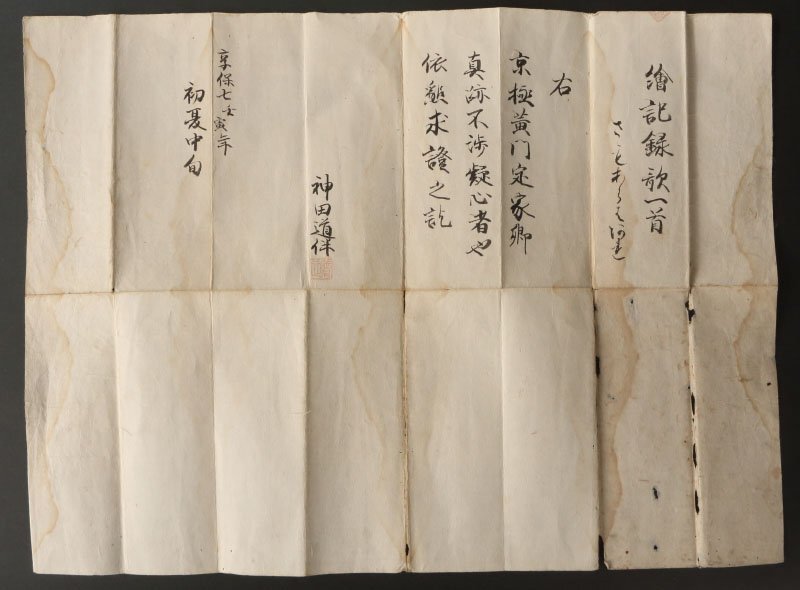 繪記録歌一首
右
京極黄門定家卿
真跡不渉疑心者也
依懇求證之訖
神田道伴
享保七壬寅年
初夏中旬